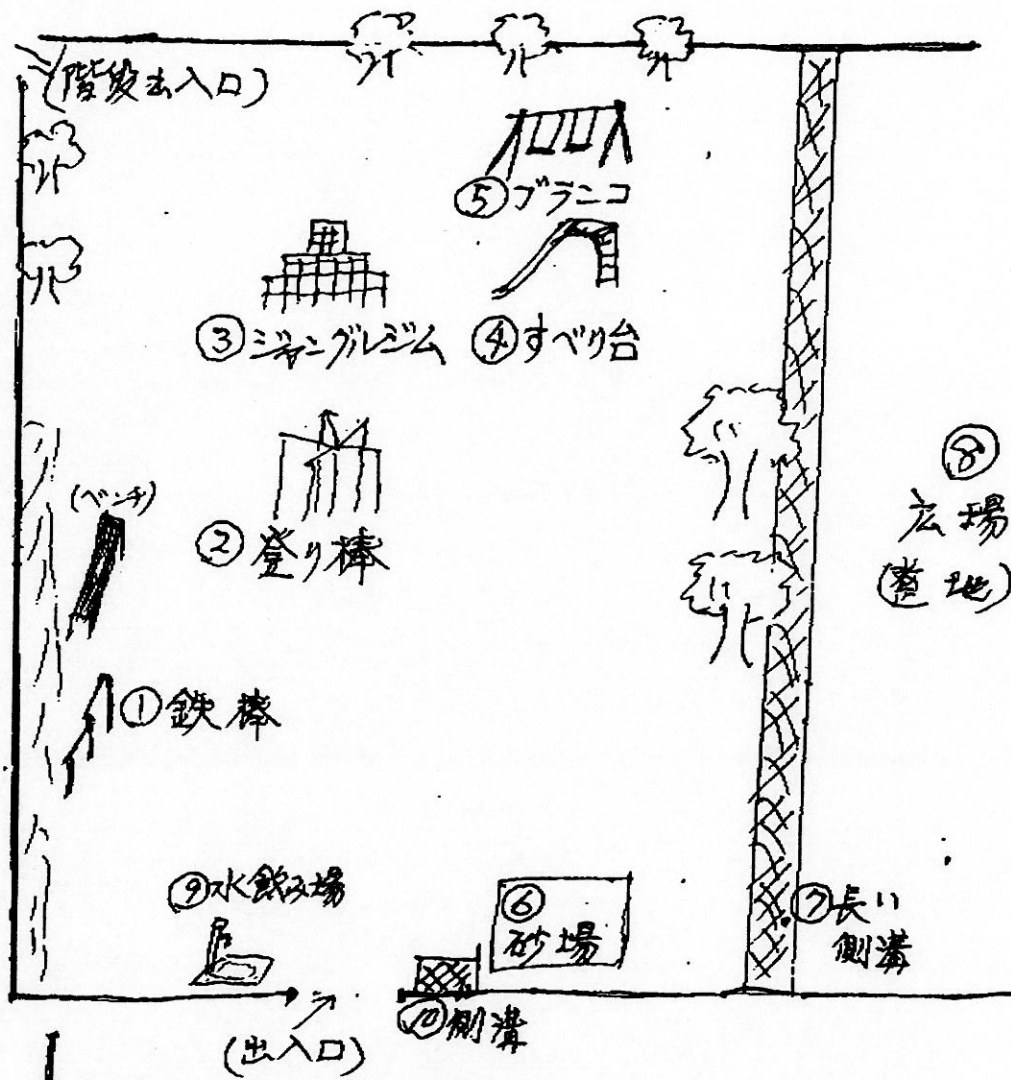 (階段出入口)
⑤ブランコ
③ジャングルジム
④すべり台
(ベンチ)
②登り棒
⑧
広場
(整地)
①鉄棒
⑨水飲み場
⑥
砂場
⑦長い
側溝
⑩側溝
(出入口)